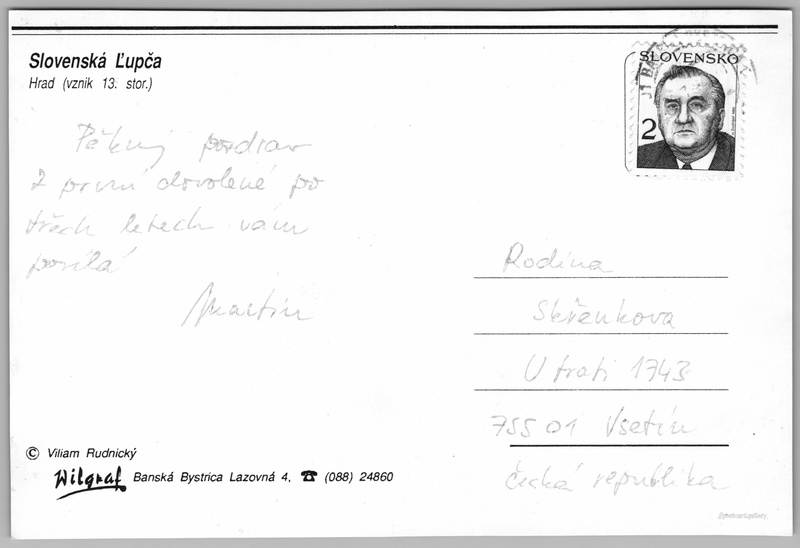 Slovenská Ľupča
Hrad (vznik 13. stor.)
SLOVENSKO
2
Pěkný pozdrav
z první dovolené po
třech letech vám
posílá
Martin
Rodina
Skřenkova
U trati 1743
755 01 Vsetín
Česká republika
© Viliam Rudnický
Wilgraf Banská Bystrica Lazovná 4, ☎ (088) 24860